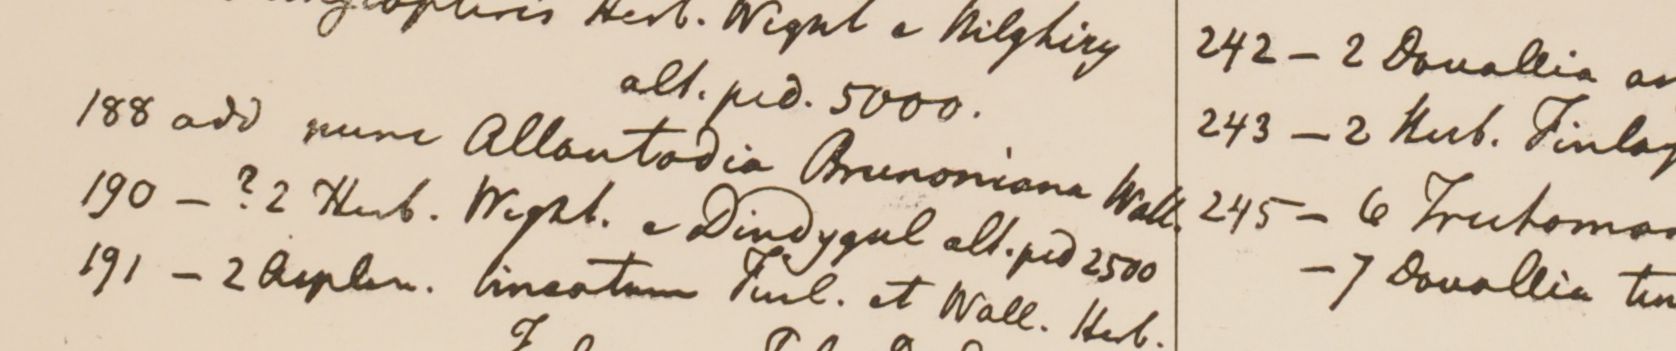 Herb. Wight e Nilghiry
alt. ped. 5000.
188 add nunc Allantodia Brunoniana Wall.
190 – ? 2 Herb. Wight. e Dindygul alt. ped 2500
191 – 2 Asplen. lineatum Finl. et Wall. Herb.
242 – 2 Davallia
243 – 2 Herb. Finlay
245 – 6 Trichoman
– 7 Davallia